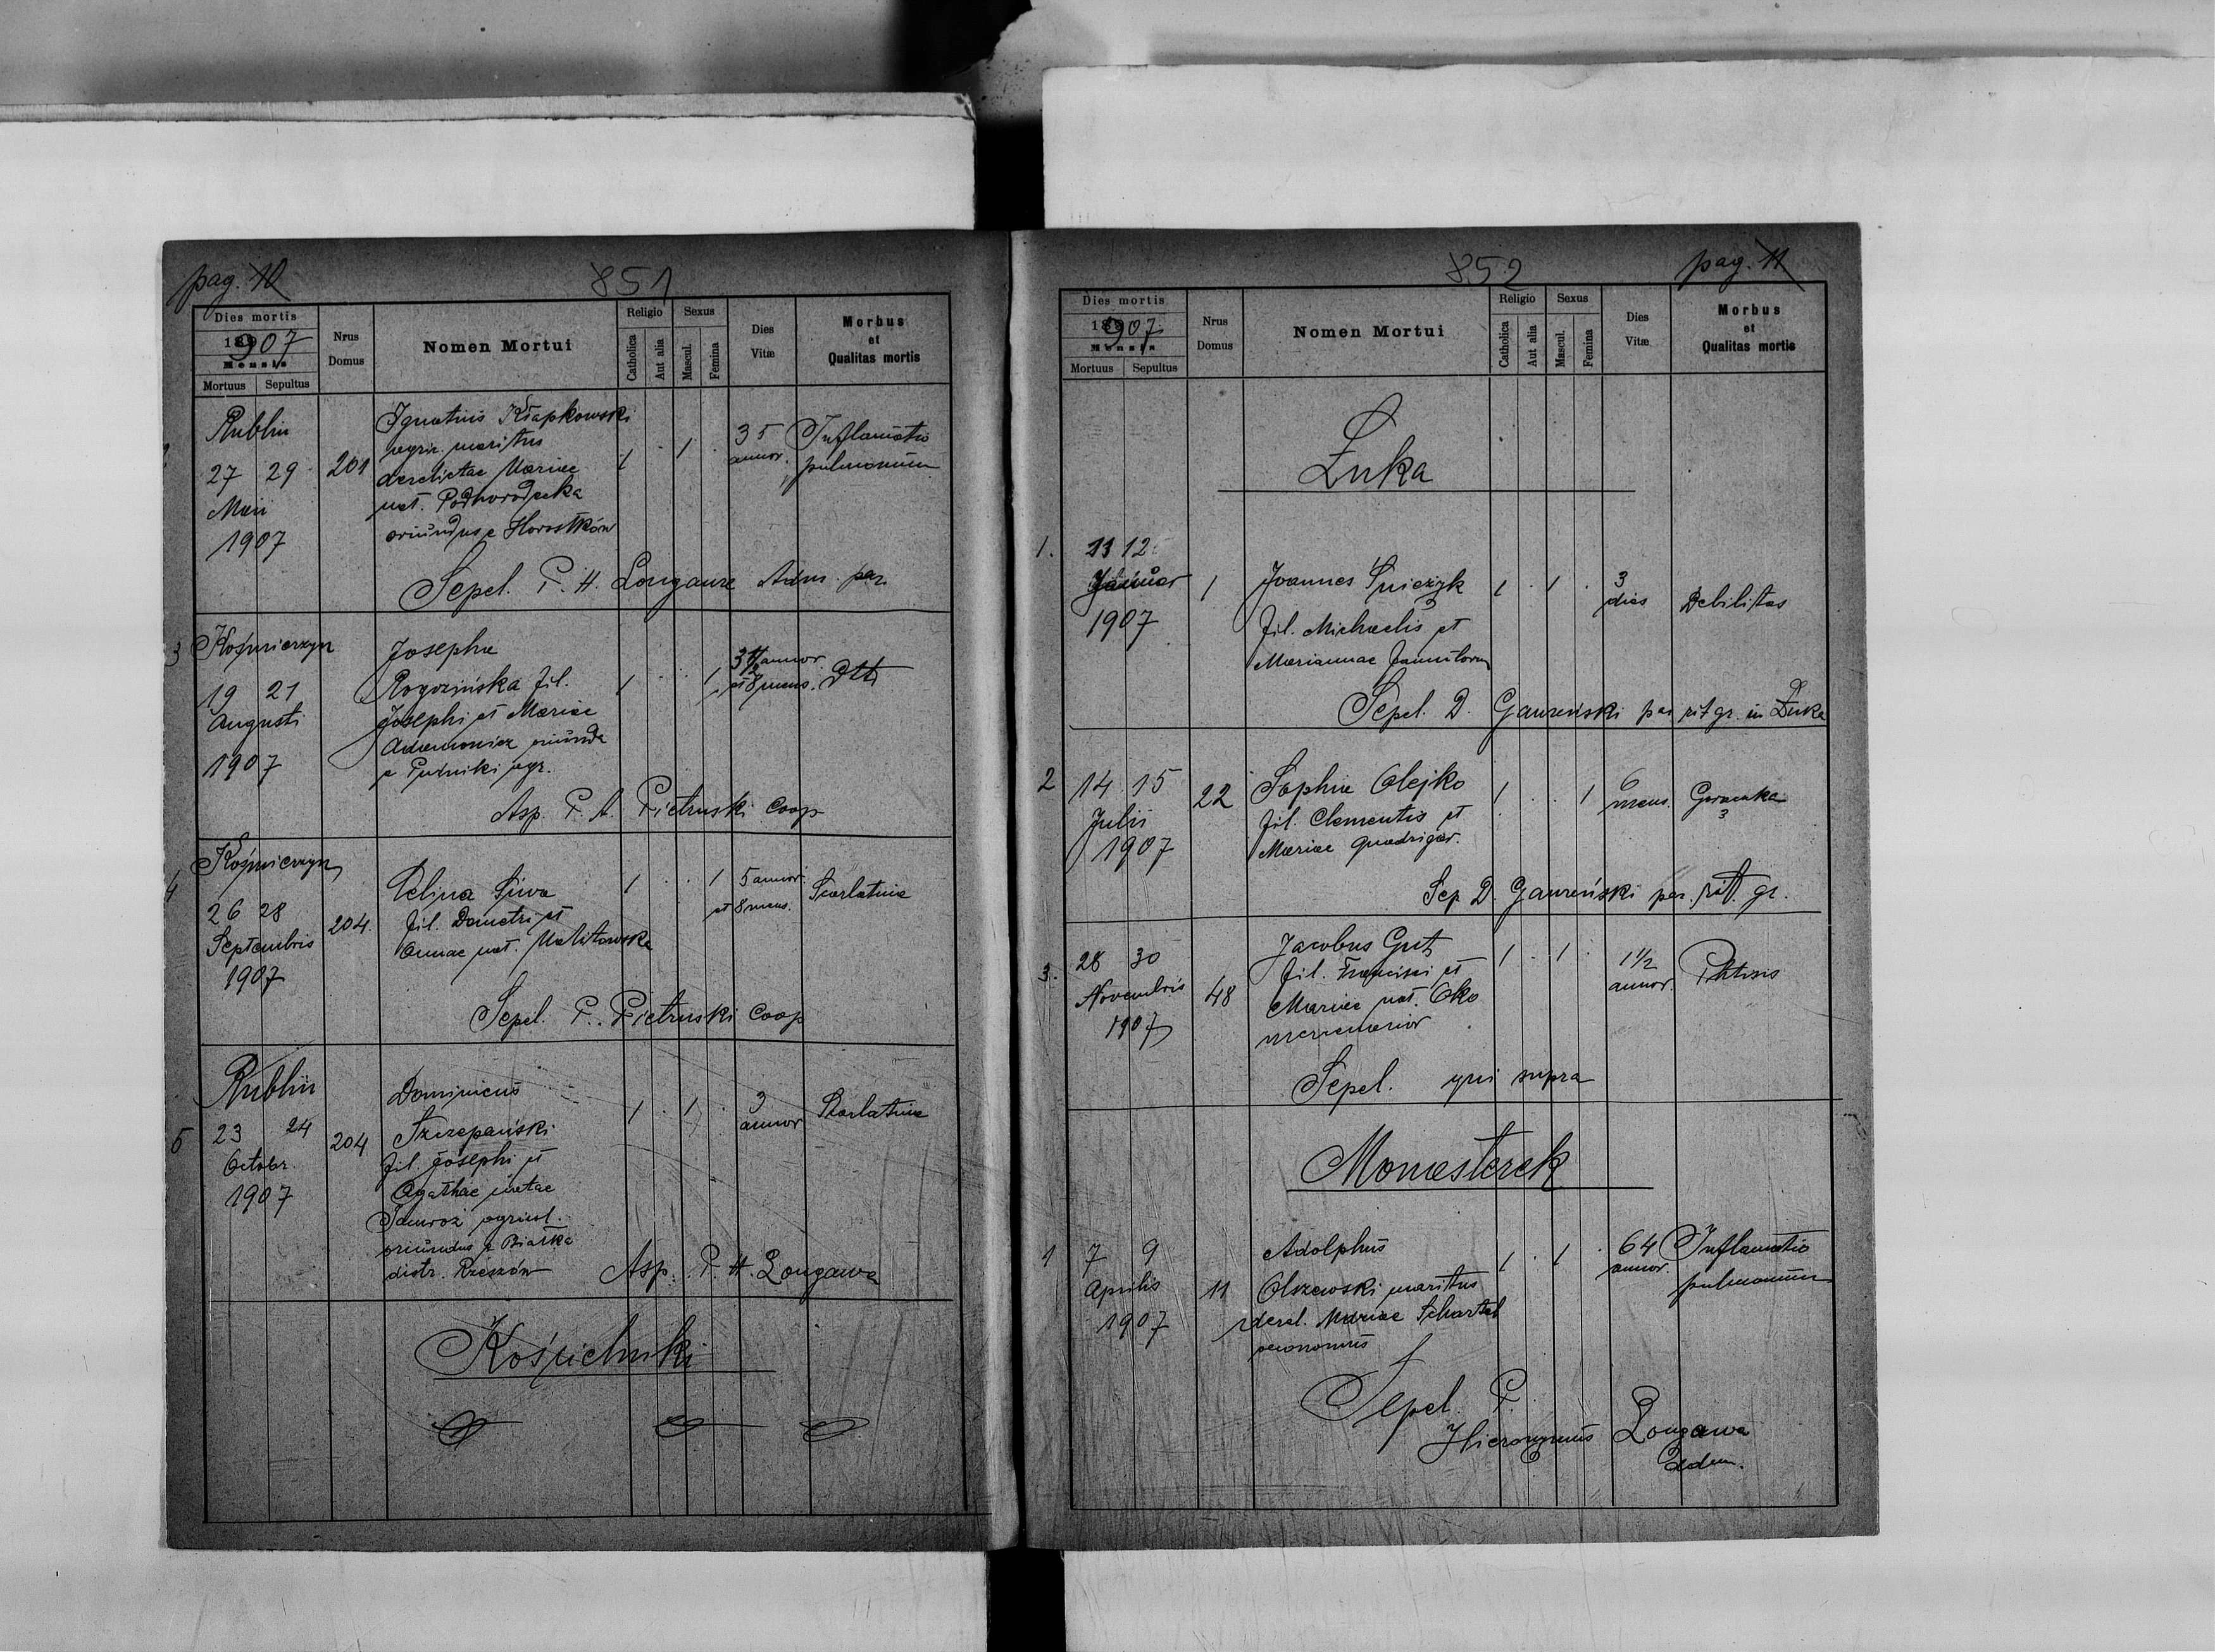 pag. 10
851
Dies mortis
1907
Mensis
Mortuus Sepultus
Nrus Domus
Nomen Mortui
Religio
Catholica
Aut alia
Sexus
Mascul.
Femina
Dies Vitæ
Morbus et Qualitas mortis
Rublin
27 29
Maii
1907
201
Ignatius Kłapkowski
agric. maritus
derelictae Mariae
nat. Podhorodecka
oriundus e Horostków
1 . 1 .
35
annor.
Inflamatio
pulmonum
Sepel. P. H. Longawa Adm. par
3
19 21
Augusti
1907
Josepha
Rogozińska fil.
Josephi et Mariae
Adamowicz oriunda
e Putniki agr.
1 . . 1
annor.
et 8 mens.
Asp. P. A. Pietruski Coop
4
26 28
Septembris
1907
204.
Celina Siwa
fil. Demetri et
Annae nat.
1 . . 1
5 annor.
et 8 mens.
Scarlatina
Sepel. P. Pietruski Coop
Rublin
5
23 24
Octobr.
1907
204
Dominicus
Szczepański
fil. Josephi et
Agathae
oriundus e Białka
distr. Rzeszów
1 . 1 .
3
annor
Scarlatina
Asp. P. H. Longawa
852
pag. 11
Dies mortis
1907
Mensis
Mortuus Sepultus
Nrus Domus
Nomen Mortui
Religio
Catholica
Aut alia
Sexus
Mascul.
Femina
Dies Vitæ
Morbus et Qualitas mortis
Łuka
1.
12
Januar
1907
1
Joannes
fil. Michaelis et
Mariannae famulorum
1 . 1 .
3
dies
Debilitas
Sepel. D. Gawreński par rit gr. in Łuka
2
14 15
Julii
1907
22
Sophia Olejko
fil. Clementis et
Mariae quadrigar.
1 . . 1
6
mens.
Sep D. Gawreński par. rit. gr.
3.
28 30
Novembris
1907
48
Jacobus Gut
fil. Francisci et
Mariae nat. Oko
1 . 1 .
1 1/2
annor.
Phtisis
Sepel. qui supra
Monasterek
1
7 9
Aprilis
1907
11
Adolphus
Olszewski maritus
derel. Mariae Schartel
oeconomus
1 . 1 .
64
annor.
Inflamatio
pulmonum
Sepel. P.
Hieronymus Longawa
Adm.